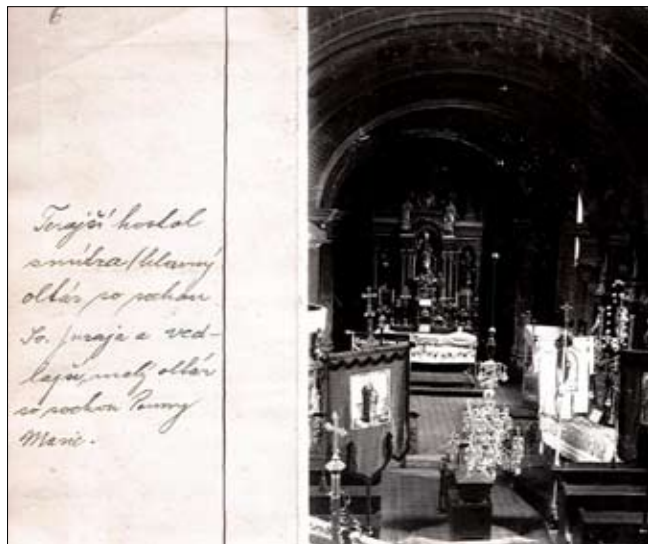 6
Terajší kostol
znútra/hlavný
oltár so sochou
Sv. Juraja a ved-
lajší, malý oltár
so sochou Panny
Marie.